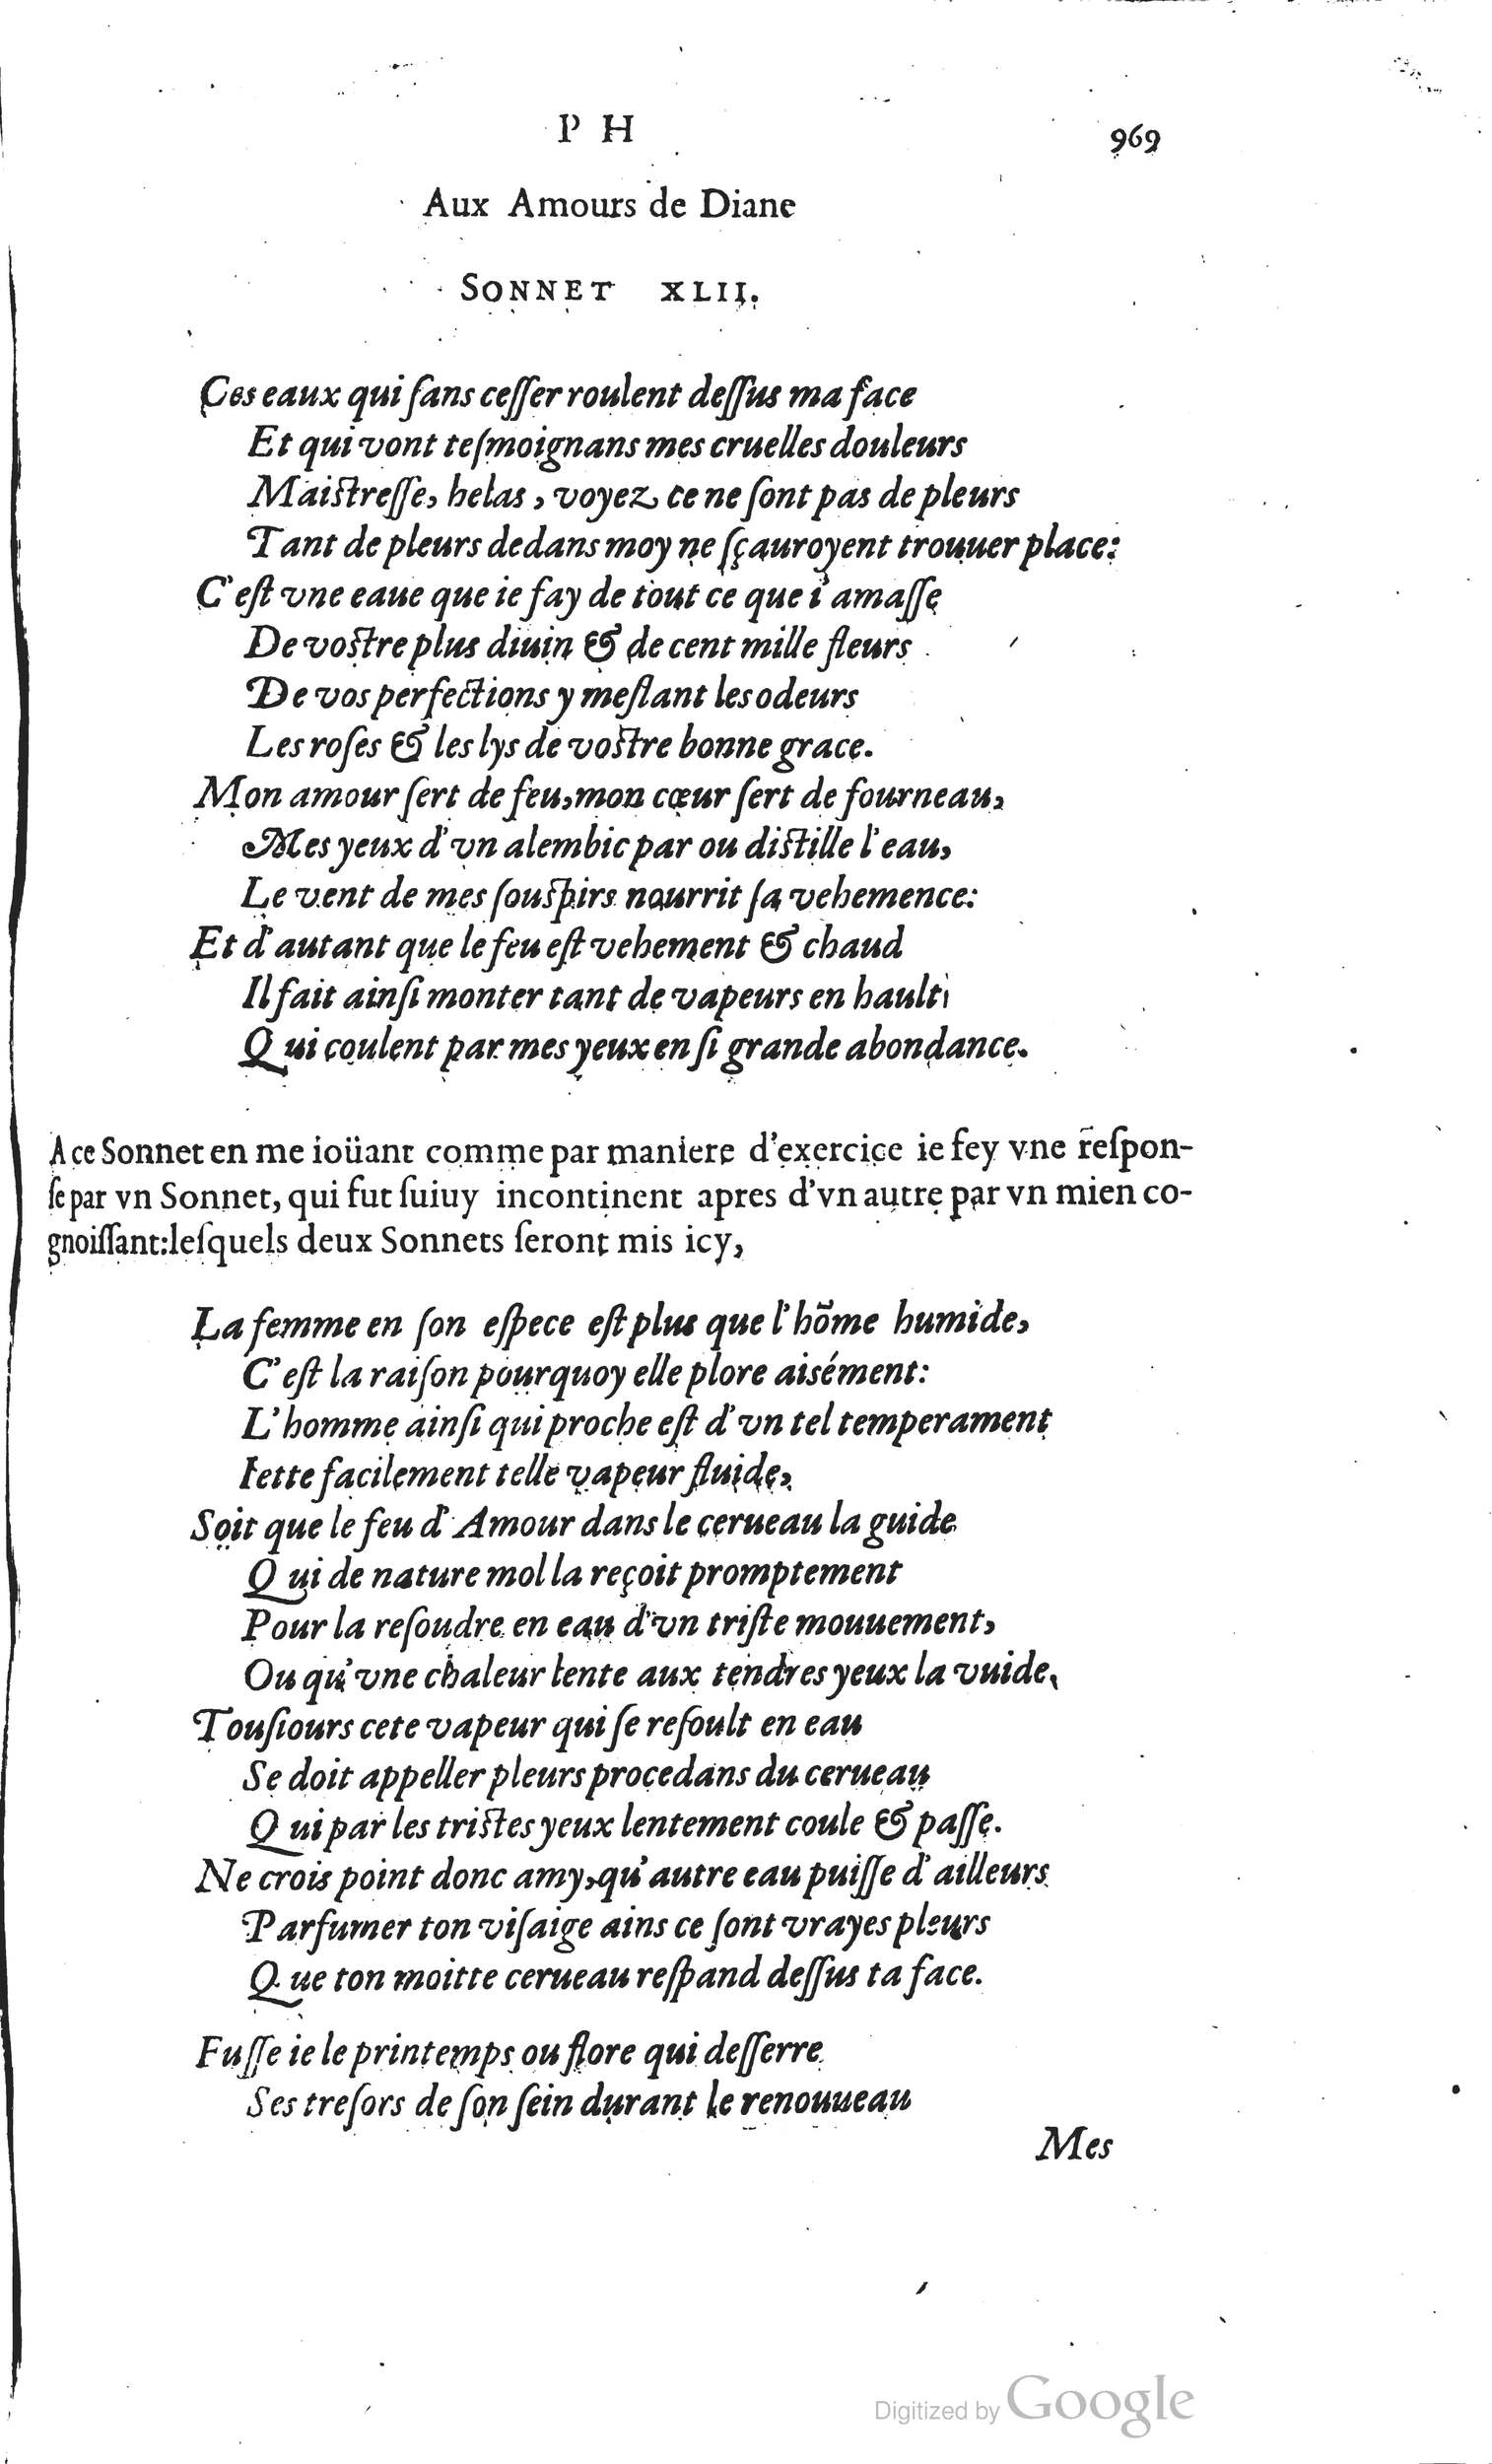 P H
969
Aux Amours de Diane
SONNET XLII.
Ces eaux qui ſans ceſſer roulent deſſus ma face
Et qui vont teſmoignans mes cruelles douleurs
Maiſtreſſe, helas, voyez ce ne ſont pas de pleurs
Tant de pleurs dedans moy ne ſçauroyent trouuer place:
C'eſt vne eaue que ie fay de tout ce que i'amaſſe
De voſtre plus diuin & de cent mille fleurs
De vos perfections y meſlant les odeurs
Les roſes & les lys de voſtre bonne grace.
Mon amour ſert de feu, mon cœur ſert de fourneau,
Mes yeux d'vn alembic par ou diſtille l'eau,
Le vent de mes ſouſpirs nourrit ſa vehemence:
Et d'autant que le feu eſt vehement & chaud
Il fait ainſi monter tant de vapeurs en hault
Qui coulent par mes yeux en ſi grande abondance.
A ce Sonnet en me ioüant comme par maniere d'exercice ie fey vne reſpon-
ſe par vn Sonnet, qui fut ſuiuy incontinent apres d'vn autre par vn mien co-
gnoiſſant: leſquels deux Sonnets ſeront mis icy,
La femme en ſon eſpece eſt plus que l'hõme humide,
C'eſt la raiſon pourquoy elle plore aisément:
L'homme ainſi qui proche eſt d'vn tel temperament
Iette facilement telle vapeur fluide,
Soit que le feu d'Amour dans le cerueau la guide
Qui de nature mol la reçoit promptement
Pour la reſoudre en eau d'vn triſte mouuement,
Ou qu'vne chaleur lente aux tendres yeux la vuide,
Touſiours cete vapeur qui ſe reſoult en eau
Se doit appeller pleurs procedans du cerueau
Qui par les triſtes yeux lentement coule & paſſe.
Ne crois point donc amy, qu'autre eau puiſſe d'ailleurs
Parfumer ton viſaige ains ce ſont vrayes pleurs
Que ton moitte cerueau reſpand deſſus ta face.
Fuſſe ie le printemps ou flore qui deſſerre
Ses treſors de ſon ſein durant le renouueau
Mes
Digitized by Google